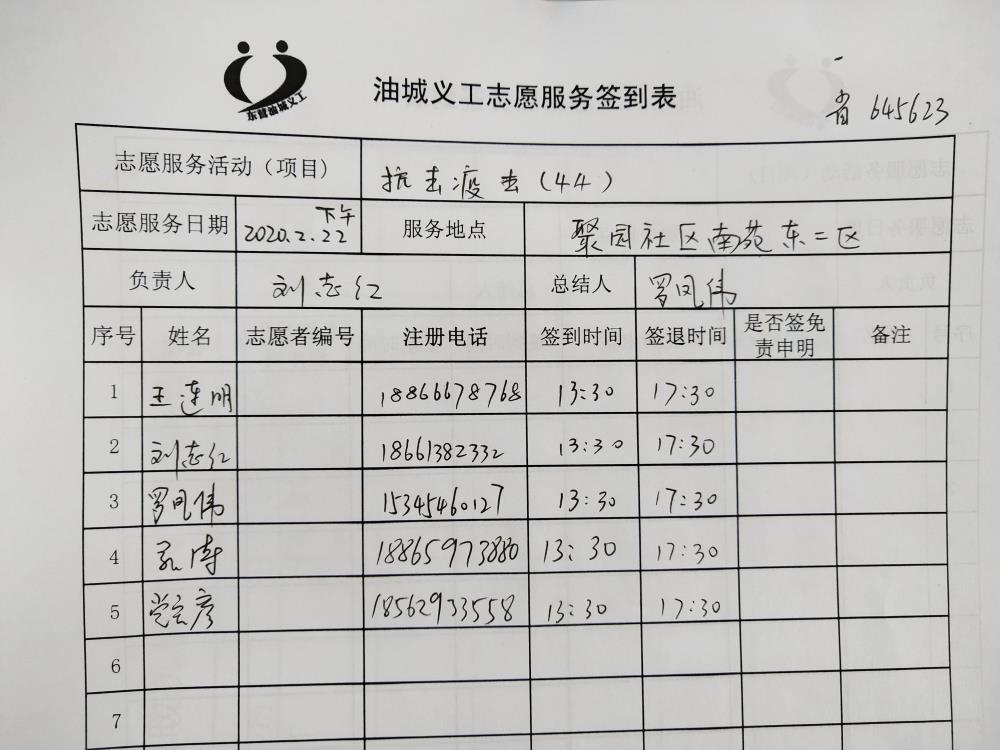 东营油城义工
油城义工志愿服务签到表
省 645623
志愿服务活动（项目） 抗击疫击（44）
志愿服务日期 2020.2.22 下午 服务地点 聚园社区南苑东二区
负责人 刘志红 总结人 罗凤伟
序号 姓名 志愿者编号 注册电话 签到时间 签退时间 是否签免责申明 备注
1 王连明 18866678768 13:30 17:30
2 刘志红 18661382332 13:30 17:30
3 罗凤伟 15345460127 13:30 17:30
4 孔涛 18865973880 13:30 17:30
5 党云彦 18562933558 13:30 17:30
6
7